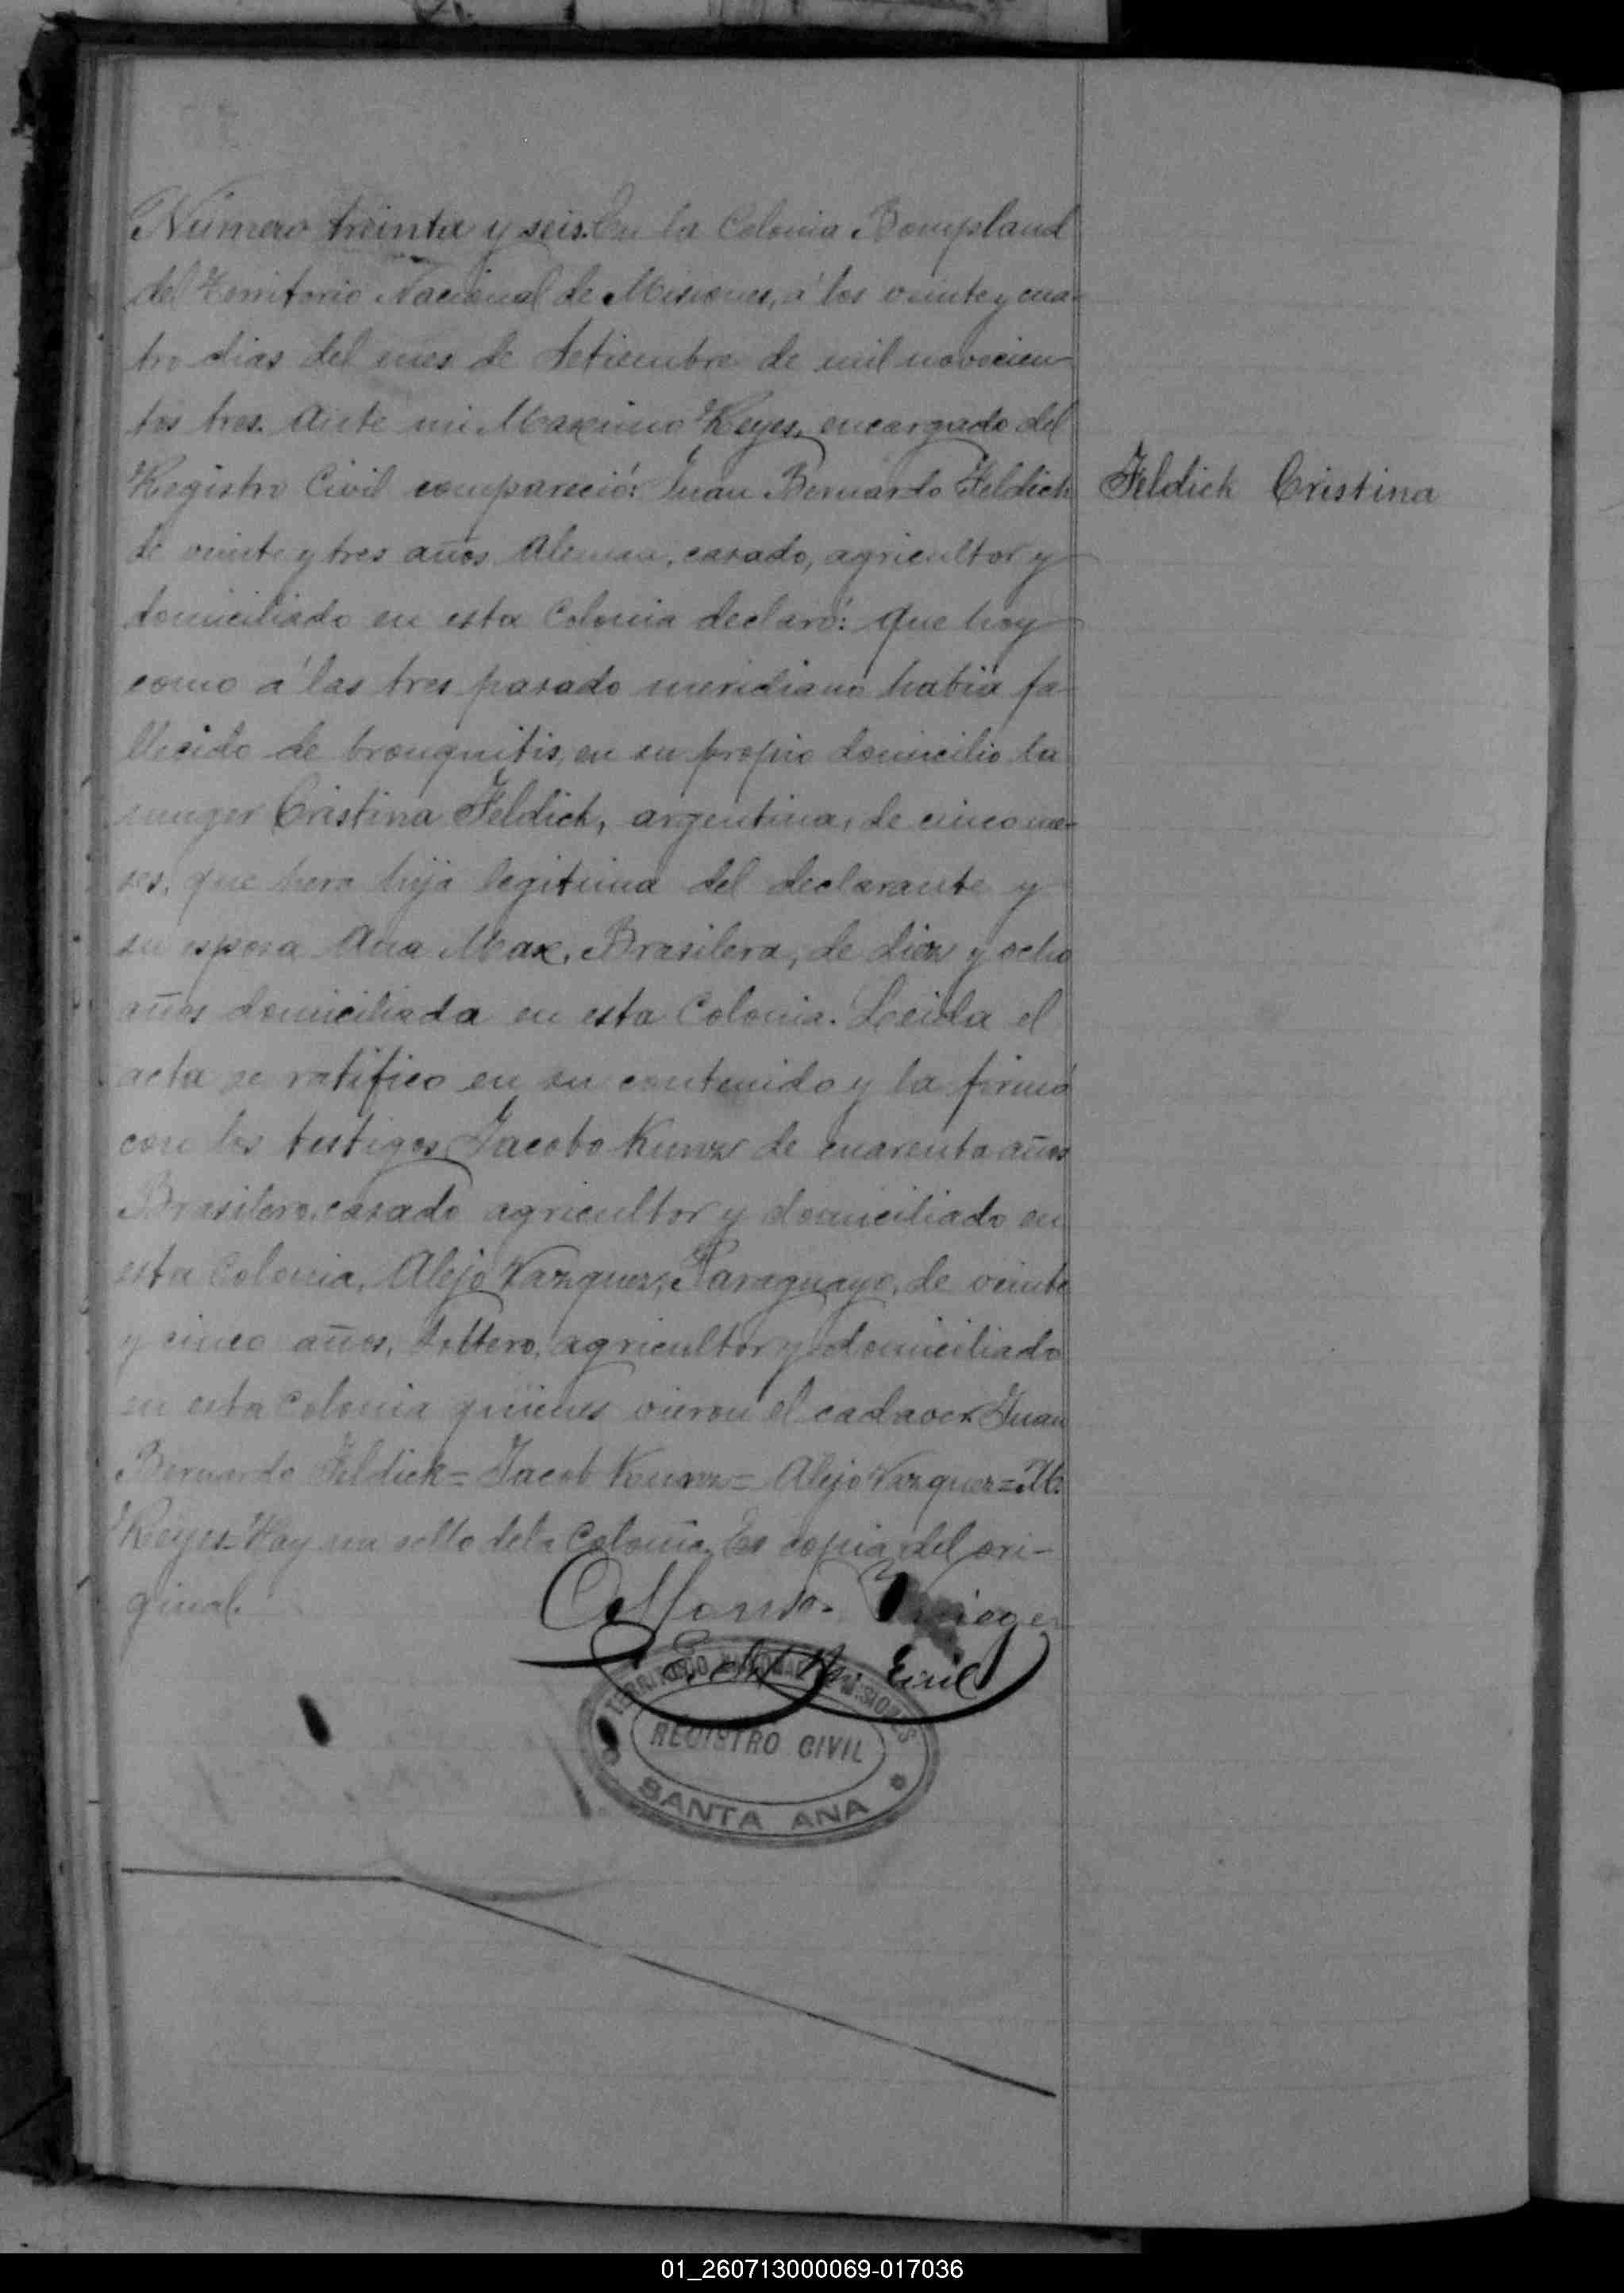 Número treinta y seis. En la Colonia Bompland
del Territorio Nacional de Misiones, á los veinte y cua-
tro dias del mes de Setiembre de mil novecien-
tos tres. Ante mi Maximo Reyes, encargado del
Registro Civil compareció: Juan Bernardo Feldick
Feldick Cristina
de veinte y tres años Aleman, casado, agricultor y
domiciliado en esta Colonia declaró: que hoy
como á las tres pasado meridiano habia fa-
llecido de bronquitis, en su propio domicilio la
muger Cristina Feldick, argentina, de cinco me-
ses, que hera hija legitima del declarante y
su esposa Ana Max, Brasilera, de diez y ocho
años domiciliada en esta Colonia. Leida el
acta se ratifico en su contenido y la firmó
con los testigos Jacobo Kunz de cuarenta años
Brasilero, casado agricultor y domiciliado en
esta Colonia, Alejo Vazquez, Paraguayo, de veinte
y cinco años, soltero, agricultor y domiciliado
en esta Colonia quienes vieron el cadaver. Juan
Bernardo Feldick = Jacob Kunz = Alejo Vazquez = M.
Reyes. Hay un sello de la Colonia. Es copia del ori-
ginal.
Civil
TERRITORIO NACIONAL DE MISIONES
REGISTRO CIVIL
SANTA ANA
01_260713000069-017036